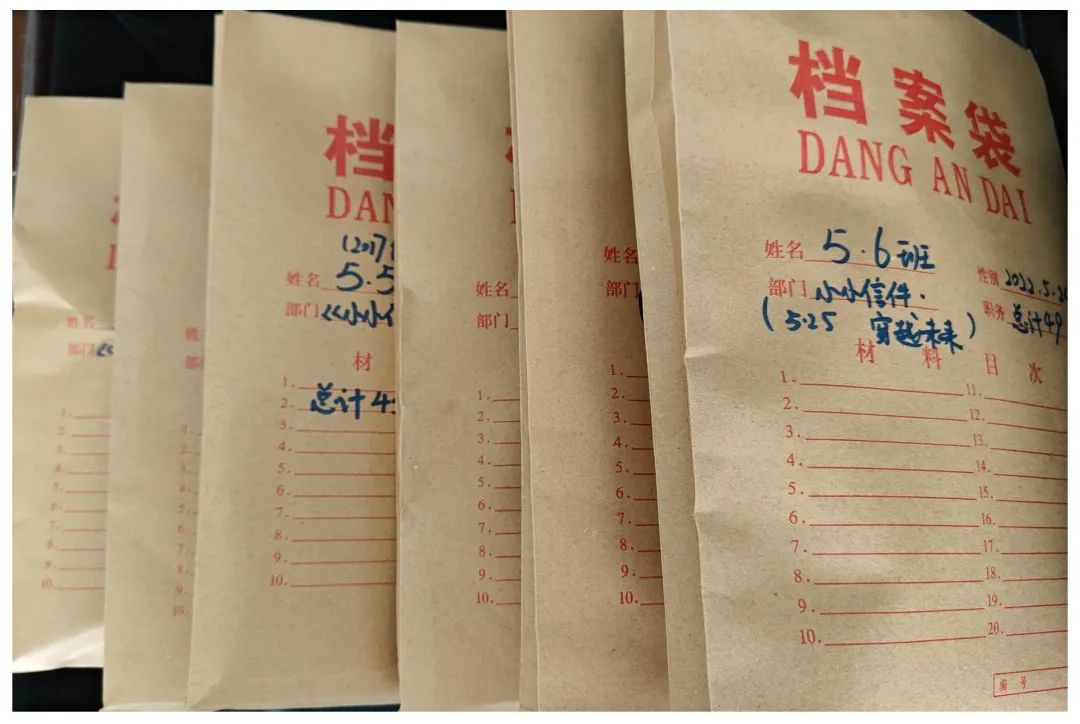 档案袋
DANG AN DAI
姓名 5.6班 性别 2022.5.2
部门 小小信件. 职务 总计49
(5.25 穿越未来)
材料目次
1. 11.
2. 12.
3. 13.
4. 14.
5. 15.
6. 16.
7. 17.
8. 18.
9. 19.
10. 20.
编号
姓名
部门
1.
2.
3.
4.
5.
6.
7.
8.
9.
10.
姓名
部门
1.
2.
3.
4.
5.
6.
7.
8.
9.
10.
档
DAN
(2017
姓名 5.5
部门 《小小
材
1.
2. 总计4
3.
4.
5.
6.
7.
8.
9.
10.
1.
2.
3.
4.
5.
6.
7.
8.
9.
10.
姓名
部门
1.
2.
3.
4.
5.
6.
7.
8.
9.
10.